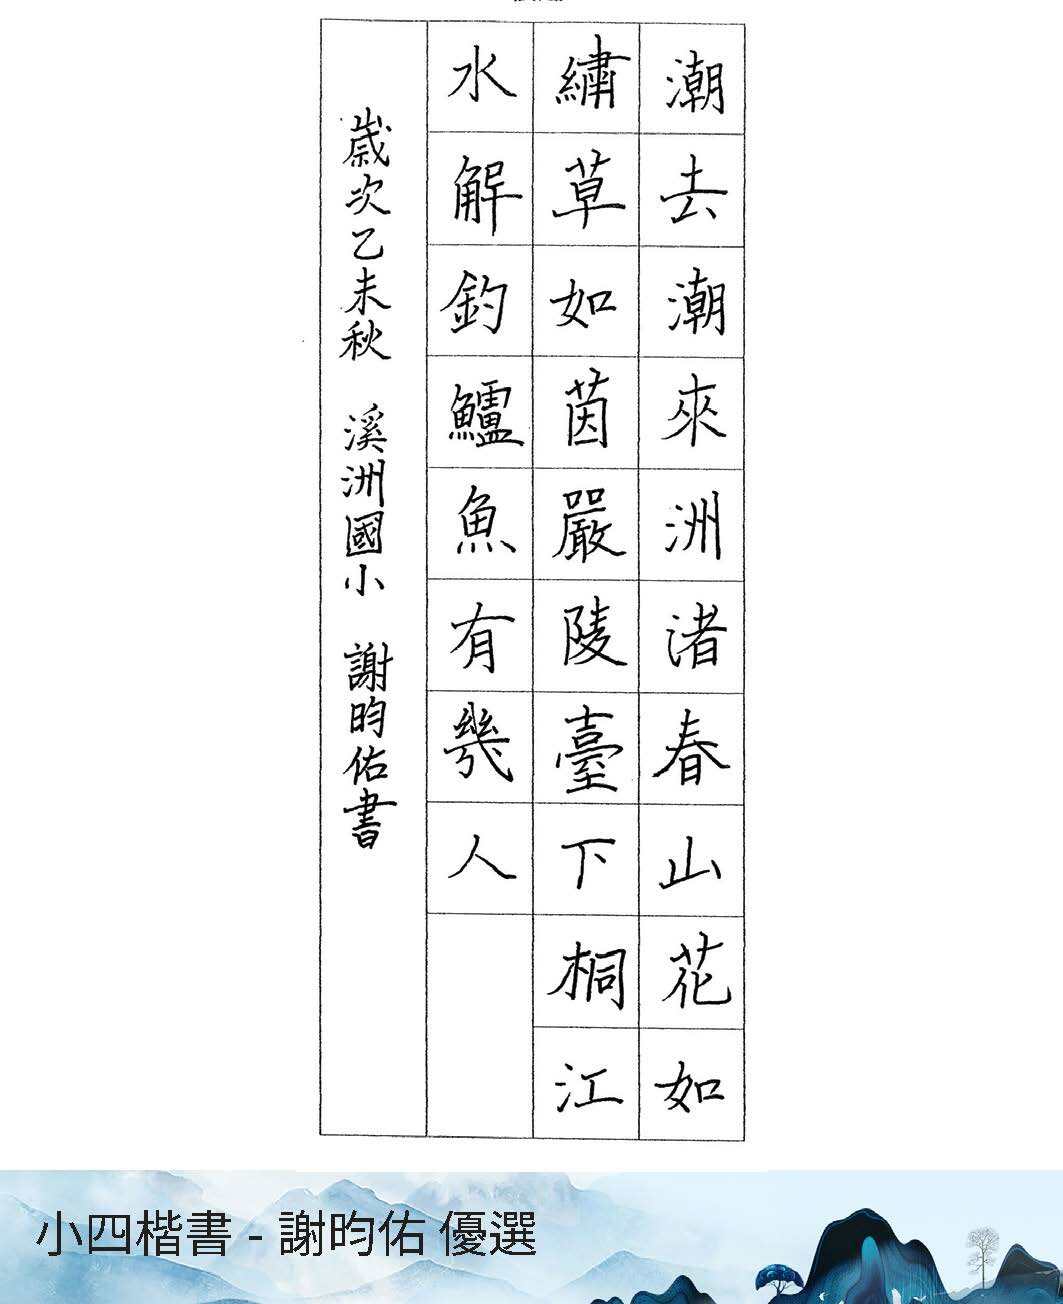 潮去潮來洲渚春山花如
繡草如茵嚴陵臺下桐江
水解釣鱸魚有幾人
歲次乙未秋 溪洲國小 謝昀佑書
小四楷書 - 謝昀佑 優選